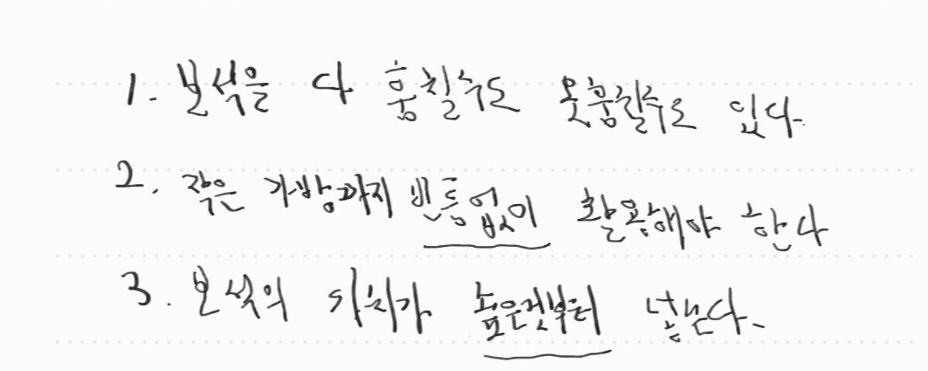 1. 보석을 다 훔칠수도 못훔칠수도 있다.
2. 작은 가방까지 빈틈없이 활용해야 한다
3. 보석의 가치가 높은것부터 넣는다.